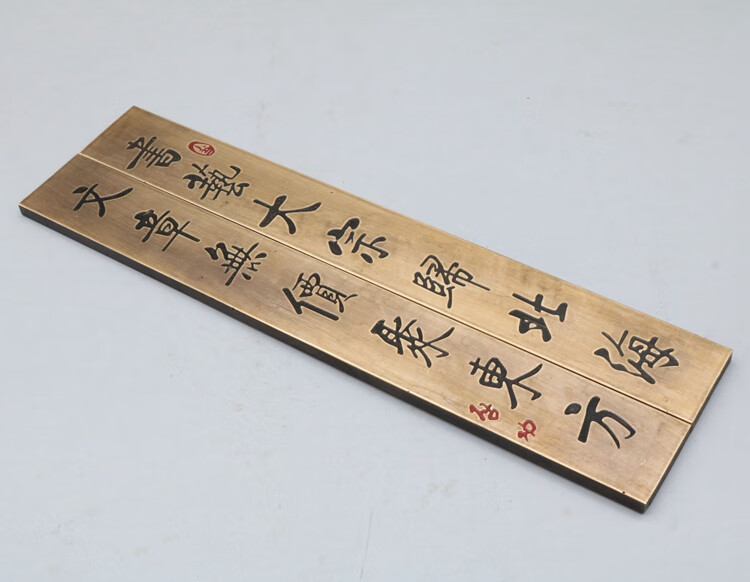 書藝大宗歸北海
文章無價聚東方